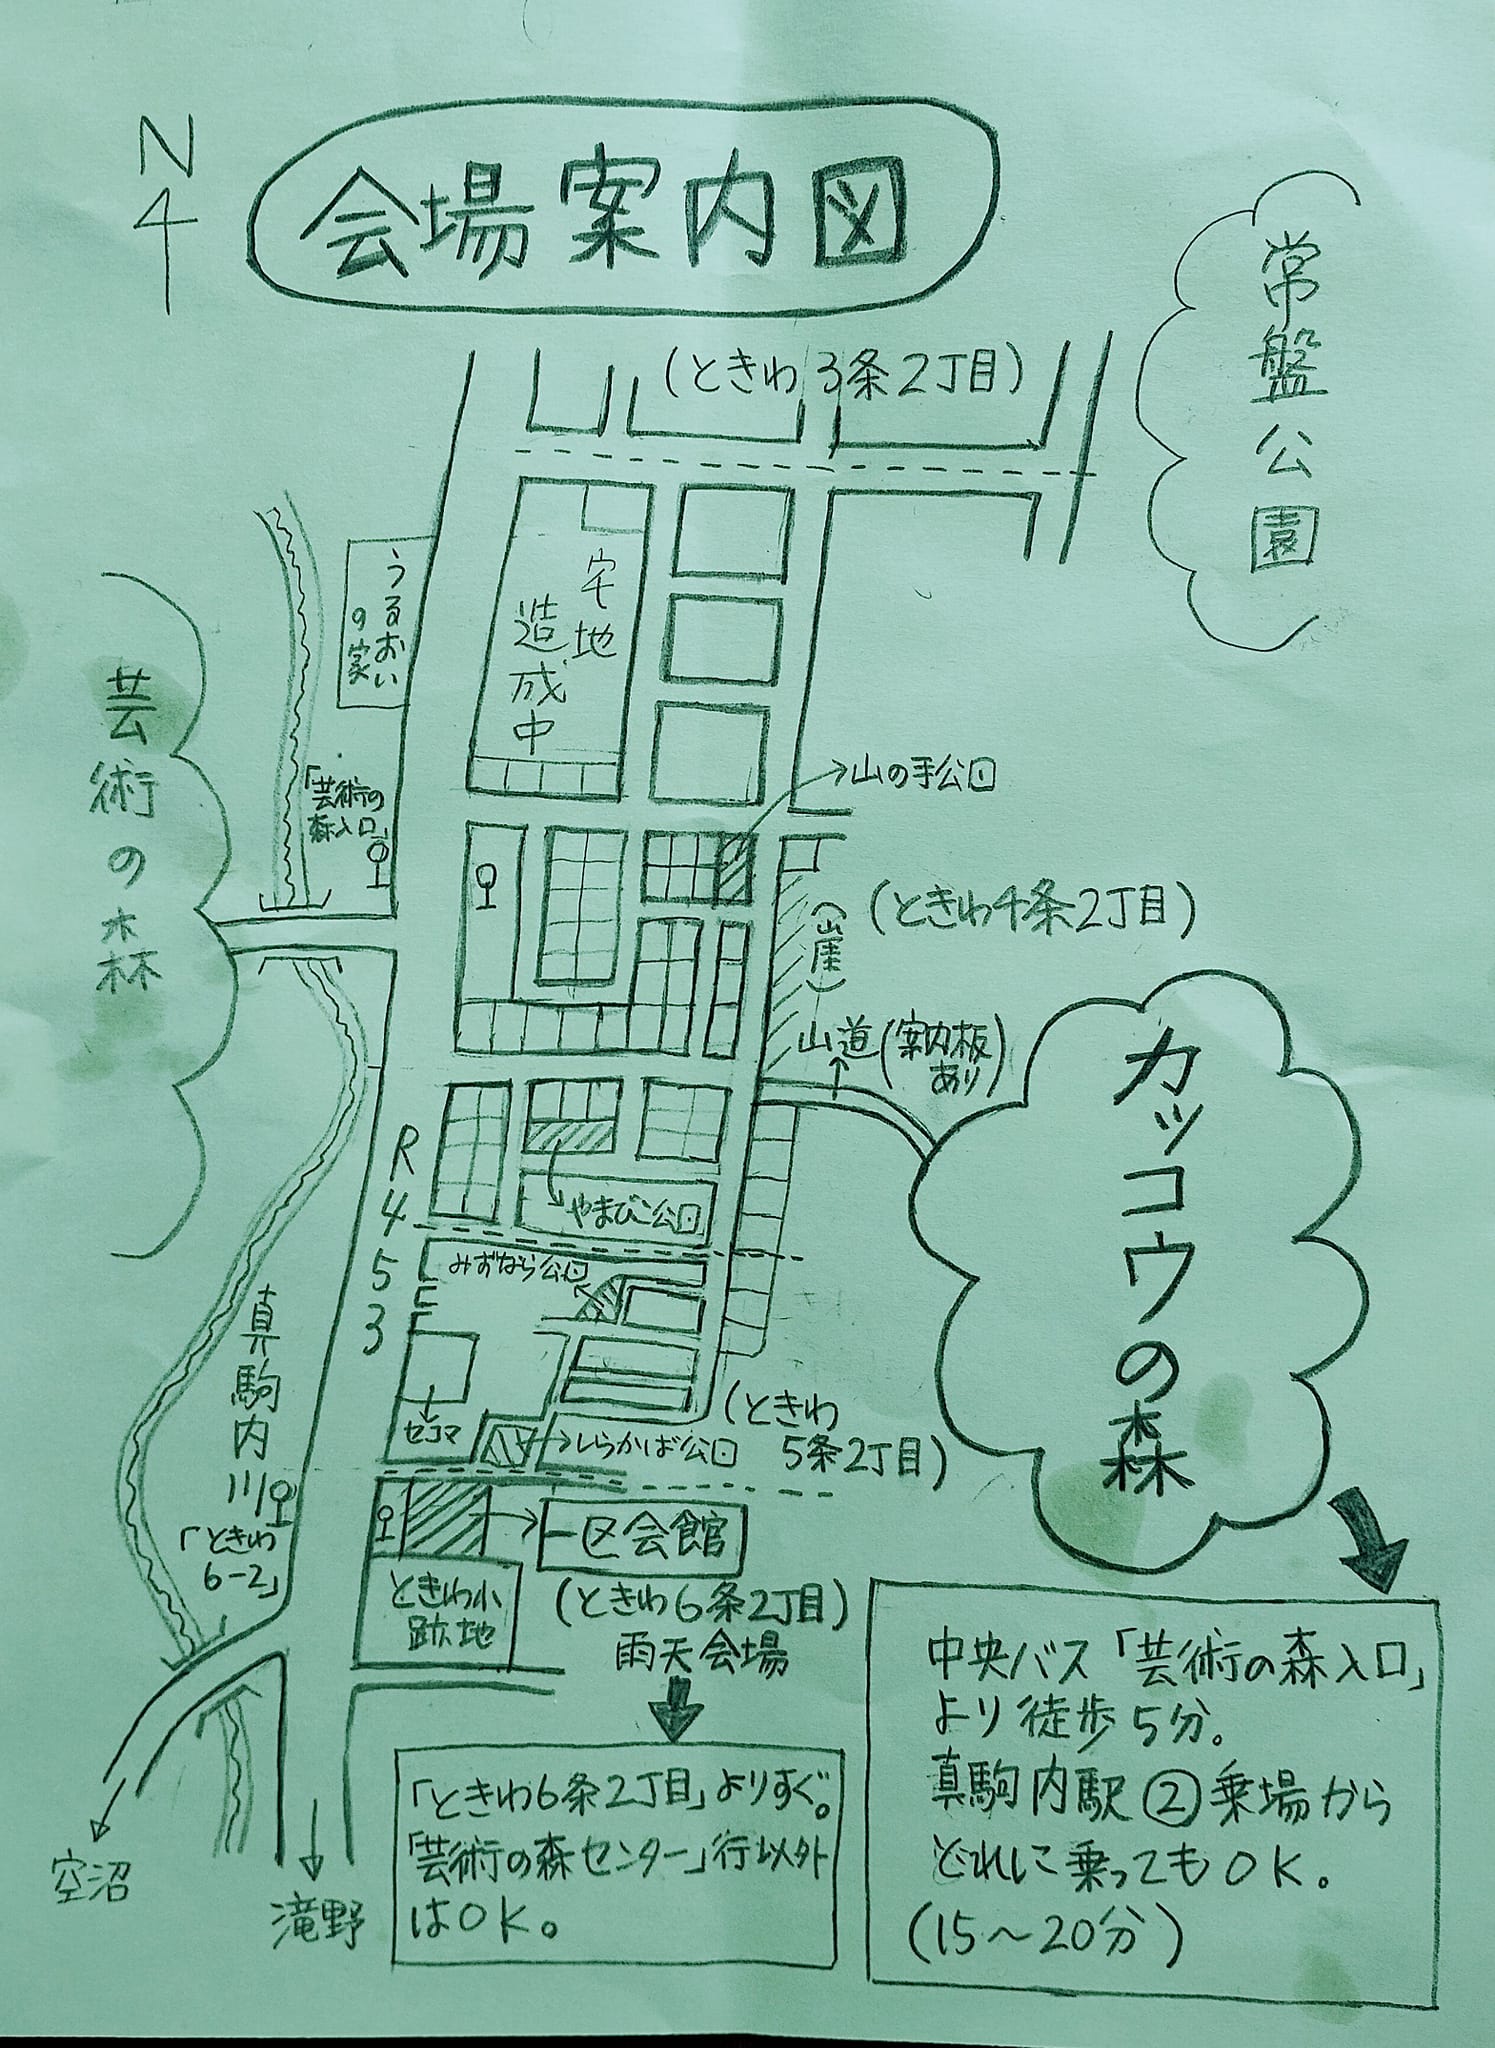 N
会場案内図
常盤公園
(ときわ3条2丁目)
うるおい
の家
宅地
造成中
芸術の森
「芸術の
森入口」
山の手公園
(ときわ4条2丁目)
(山崖)
山道(案内板
あり)
カッコウの森
R453
やまびこ公園
みずなら公園
真駒内川
セコマ
しらかば公園
(ときわ
5条2丁目)
「ときわ
6-2」
一区会館
ときわ小
跡地
(ときわ6条2丁目)
雨天会場
「ときわ6条2丁目」よりすぐ。
「芸術の森センター」行以外
はOK。
中央バス「芸術の森入口」
より徒歩5分。
真駒内駅②乗場から
どれに乗ってもOK。
(15〜20分)
空沼
滝野